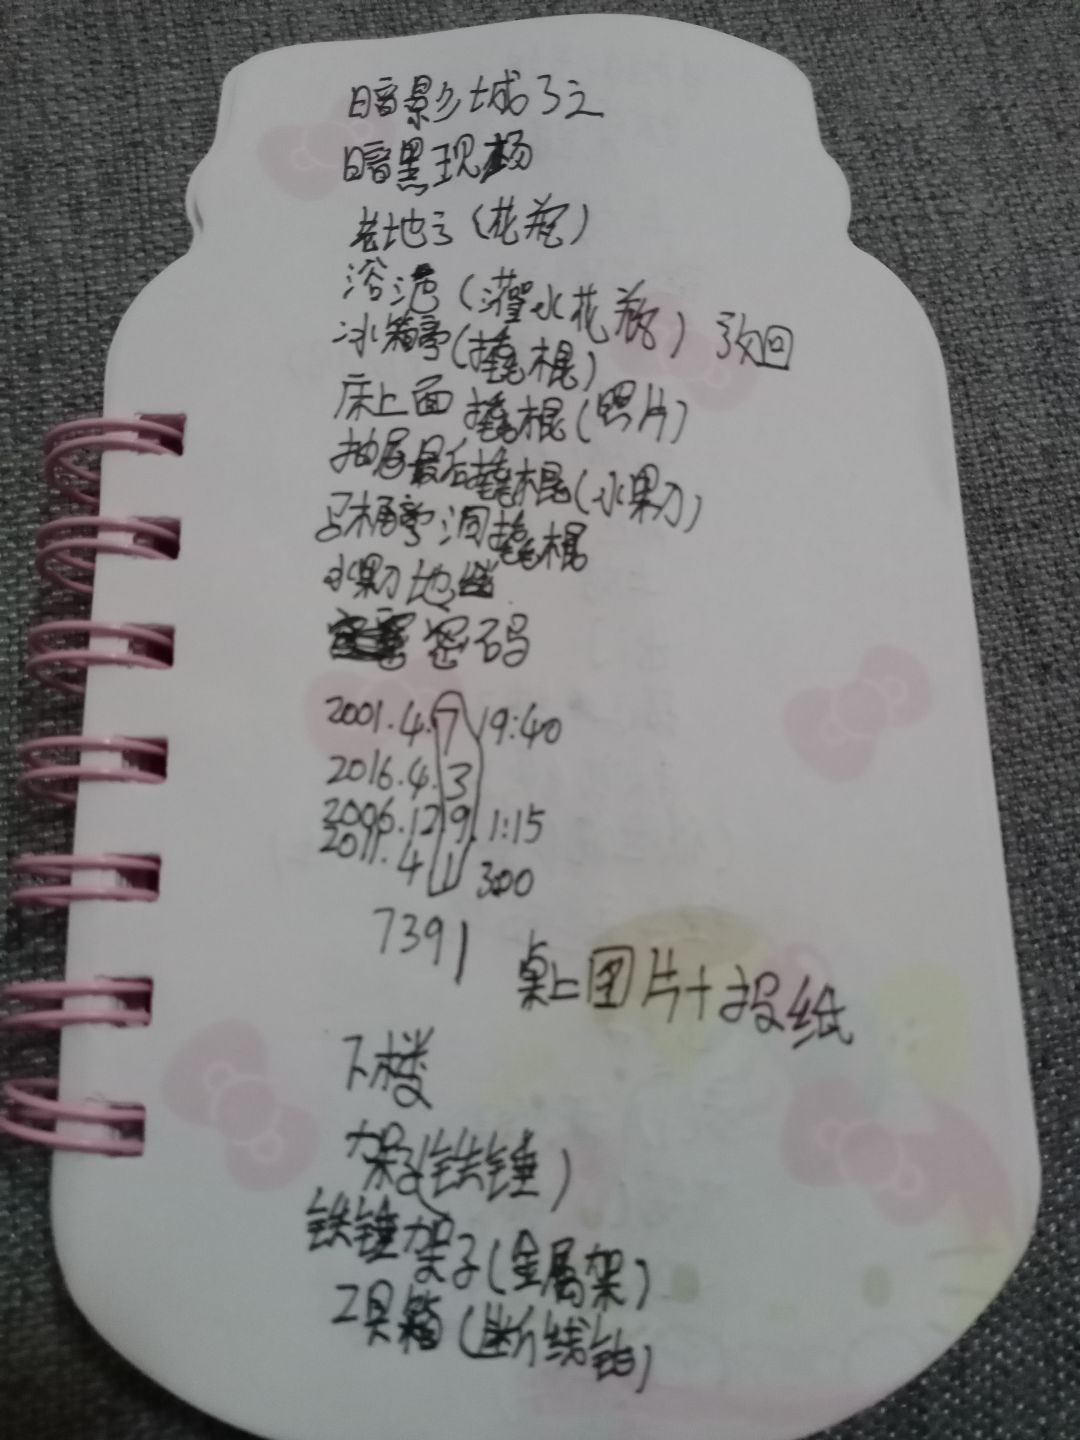 暗影之城3之
暗黑现场
老地方(花瓶)
浴池(灌水花瓶) 放回
冰箱旁(撬棍)
床上面撬棍(照片)
抽屉最后撬棍(水果刀)
马桶旁洞撬棍
水果刀地毯
密码
2001.4.7 19:40
2016.4.3
2006.12.9.1:15
2011.4 1 3:00
7391
桌上图片+报纸
下楼
架子(铁锤)
铁锤架子(金属架)
工具箱(断线钳)